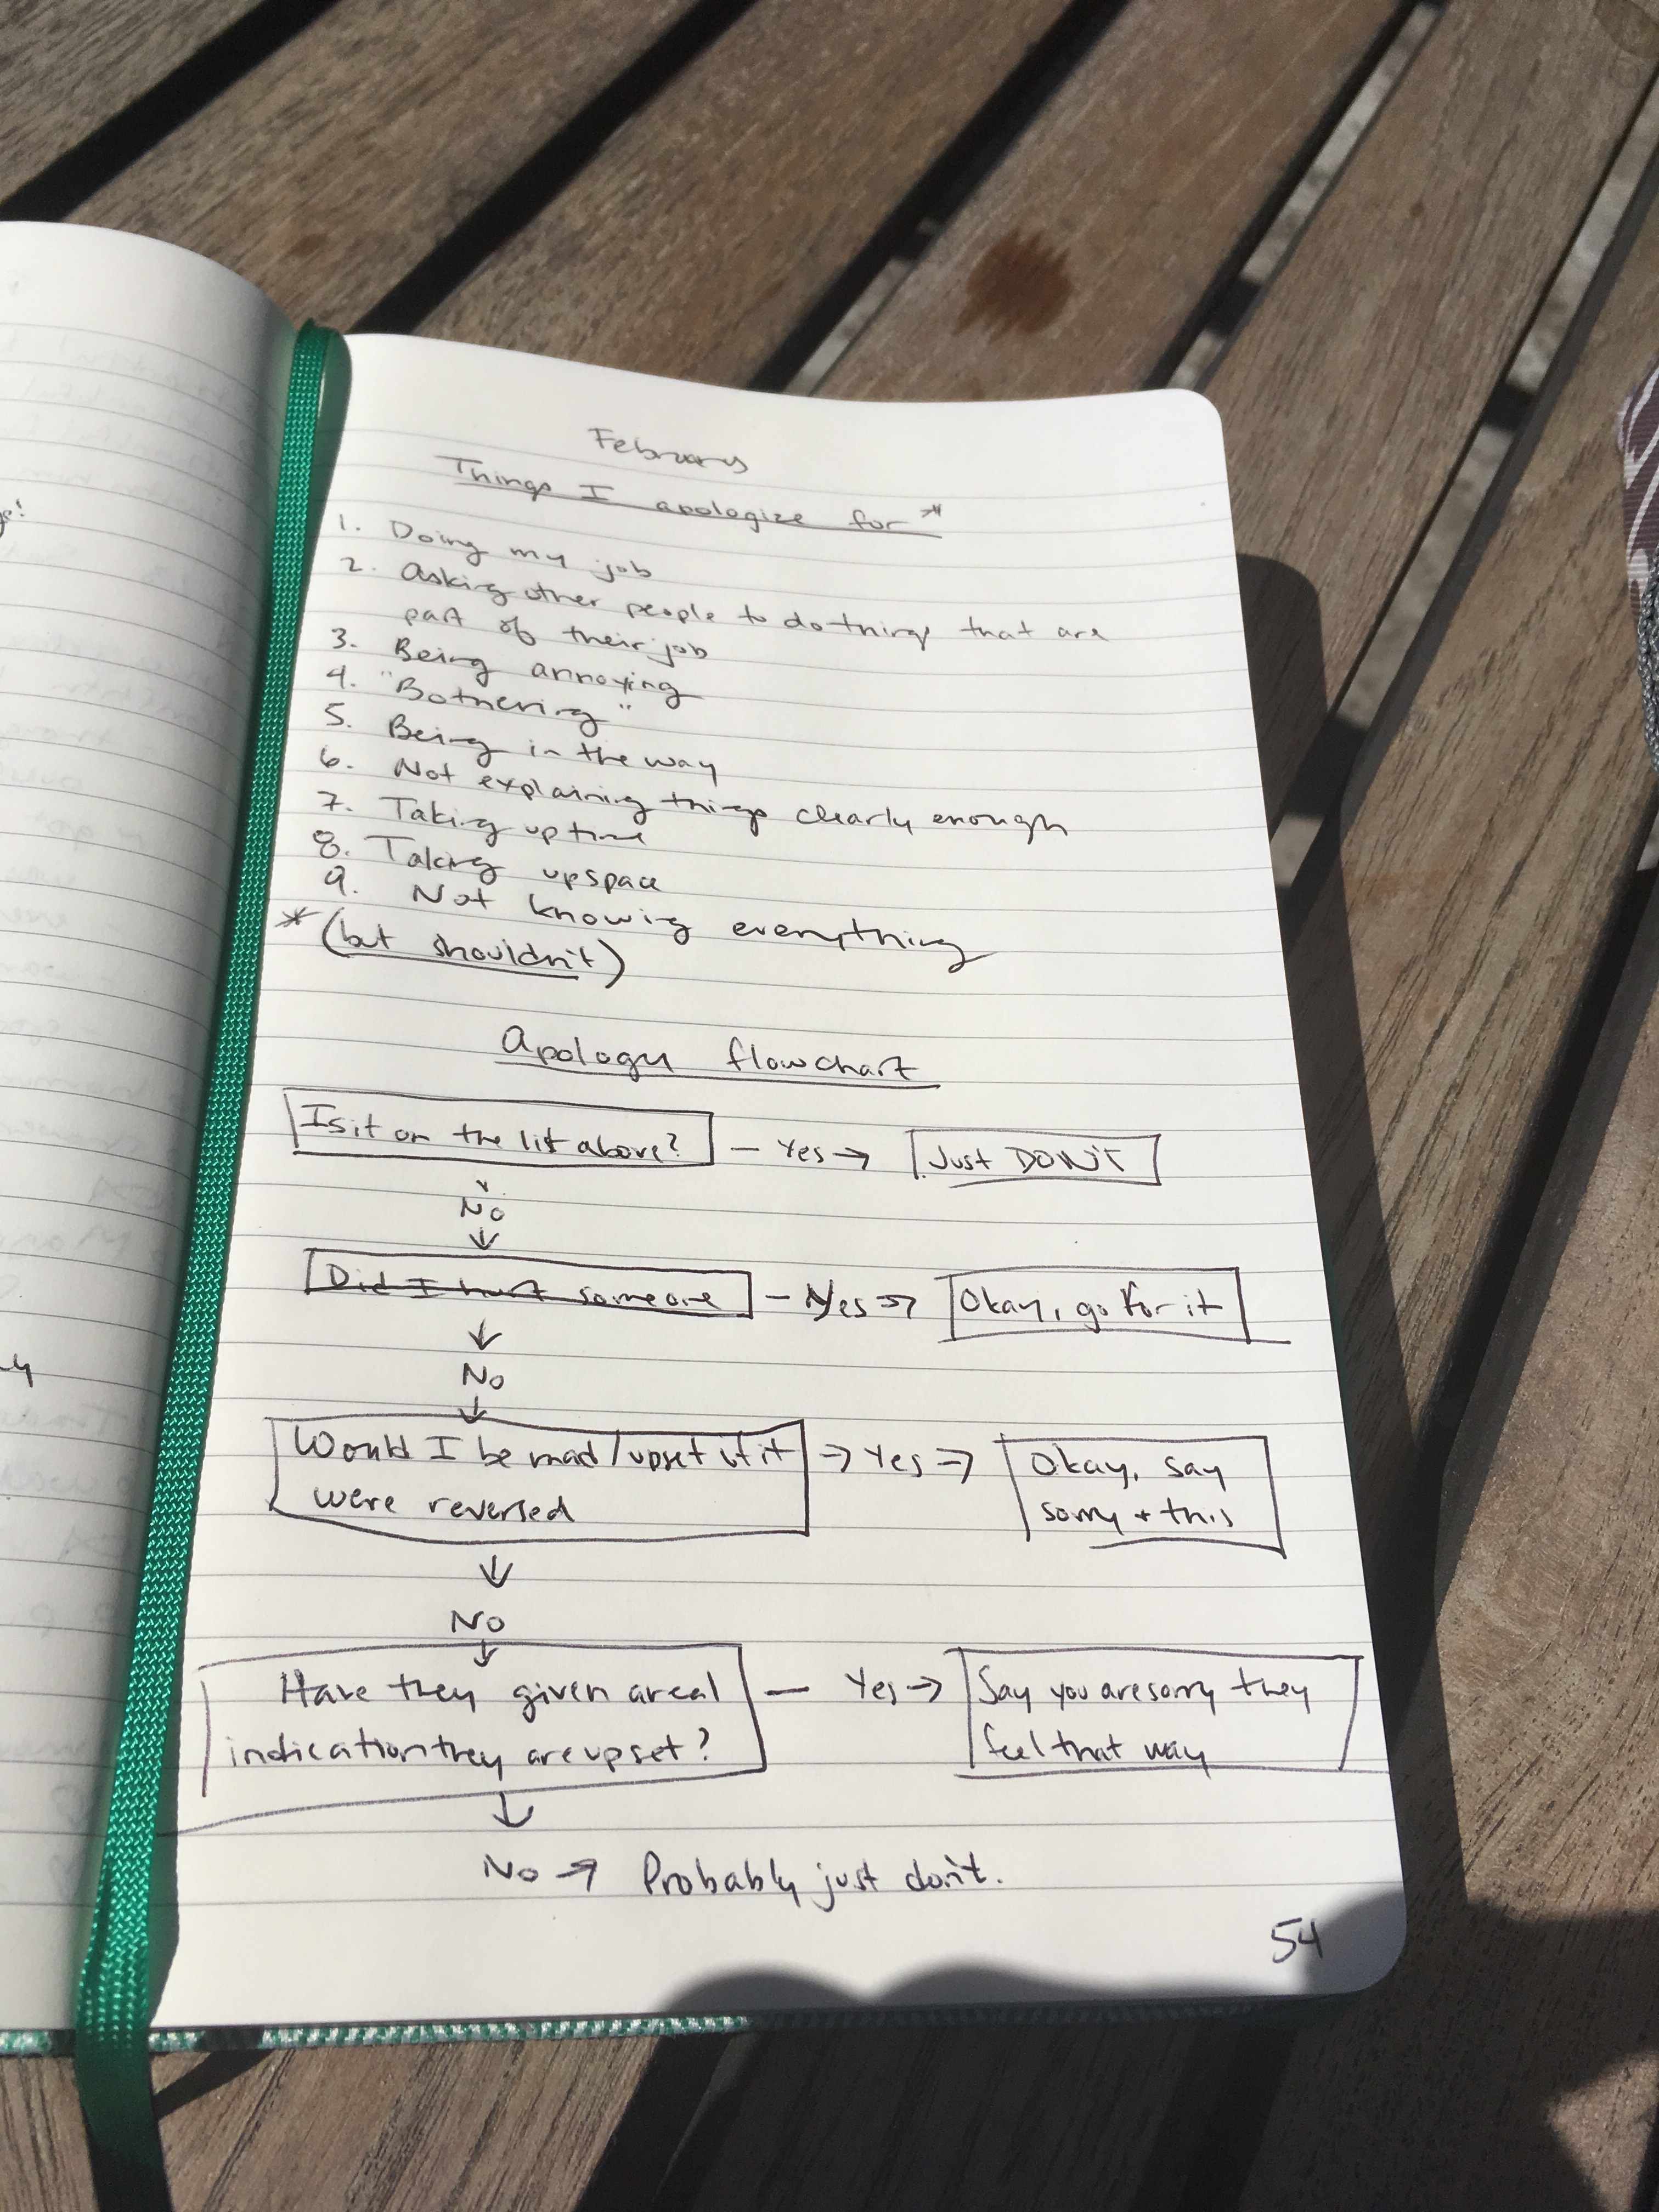 February
Things I apologize for *
1. Doing my job
2. Asking other people to do things that are
part of their job
3. Being annoying
4. "Bothering"
5. Being in the way
6. Not explaining things clearly enough
7. Taking up time
8. Taking up space
9. Not knowing everything
* (but shouldn't)
Apology flowchart
Is it on the list above? - Yes → Just DON'T
No
Did I hurt someone - Yes → Okay, go for it
No
Would I be mad/upset if it → Yes → Okay, say
were reversed sorry + this
No
Have they given a real — Yes → Say you are sorry they
indication they are upset? feel that way
No → Probably just don't.
54